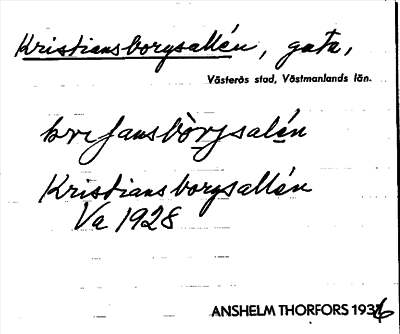 Kristiansborgsallén, gata,
Västerås stad, Västmanlands län.
Kristiansborgsallén
Va 1928
ANSHELM THORFORS 1936